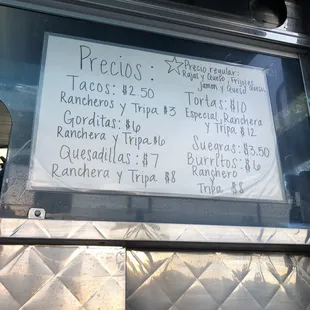 Precios:
Tacos: $2.50
Rancheros y Tripa $3
Gorditas: $6
Ranchera y Tripa $6
Quesadillas: $7
Ranchera y Tripa $8
☆Precio regular:
Rajas y Queso, Frijoles
Jamon y Queso
Tortas: $10
Especial, Ranchera
y Tripa $12
Suegras: $3.50
Burritos: $6
Ranchero
y
Tripa $8